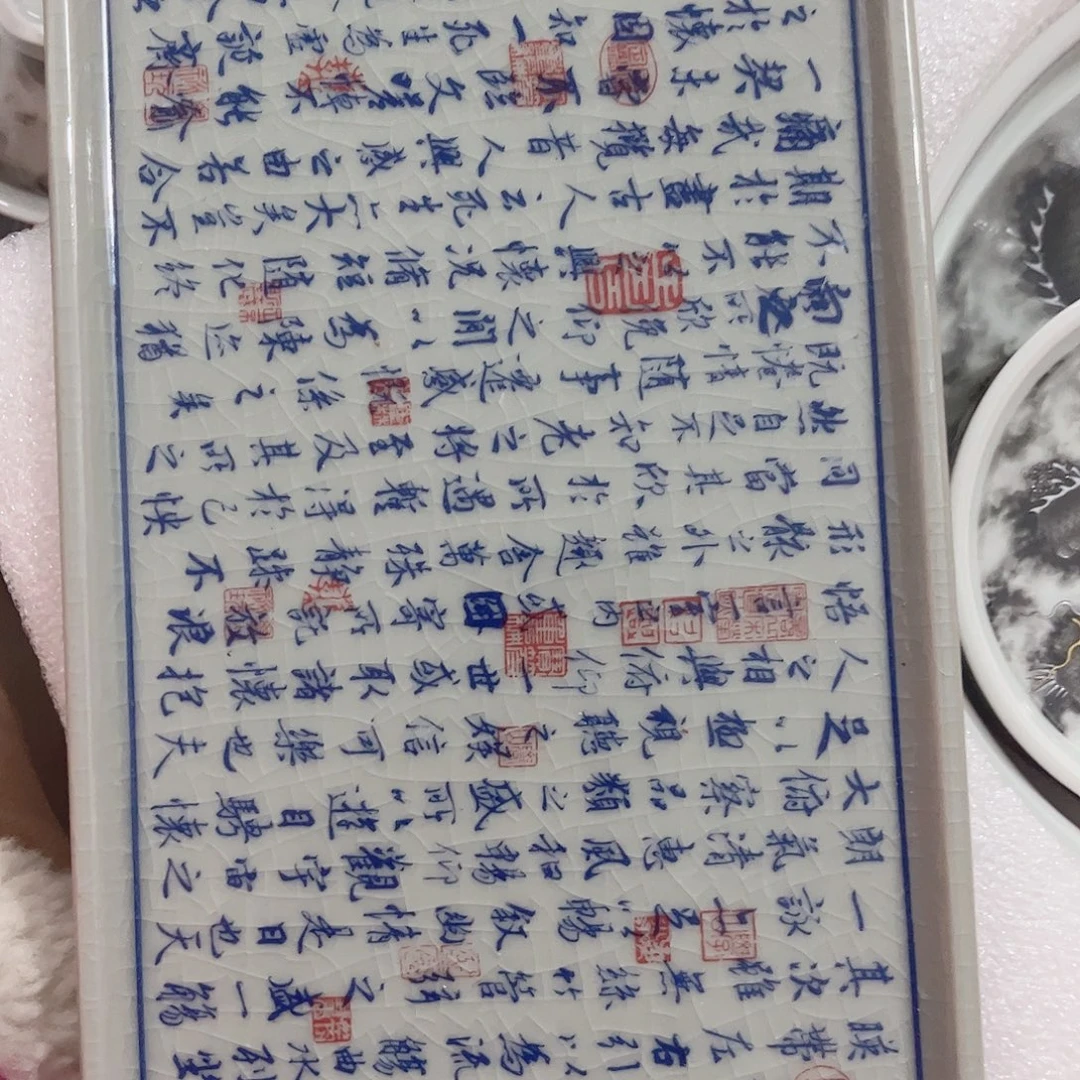 映帶左右引以為流觴曲水列坐
其次雖無絲竹管弦之盛一觴
一詠亦足以暢敘幽情是日也天
朗氣清惠風和暢仰觀宇宙之
大俯察品類之盛所以遊目騁懷
足以極視聽之娛信可樂也夫
人之相與俯仰一世或取諸懷抱
悟言一室之內或因寄所託放浪
形骸之外雖趣舍萬殊靜躁不
同當其欣於所遇暫得於己快
然自足不知老之將至及其所之
既惓情隨事遷感慨係之矣
向之所欣俛仰之間以為陳迹猶
不能不以之興懷況脩短隨化終
期於盡古人云死生亦大矣豈不
痛哉每攬昔人興感之由若合
一契未嘗不臨文嗟悼不能喻
之於懷固知一死生為虛誕齊